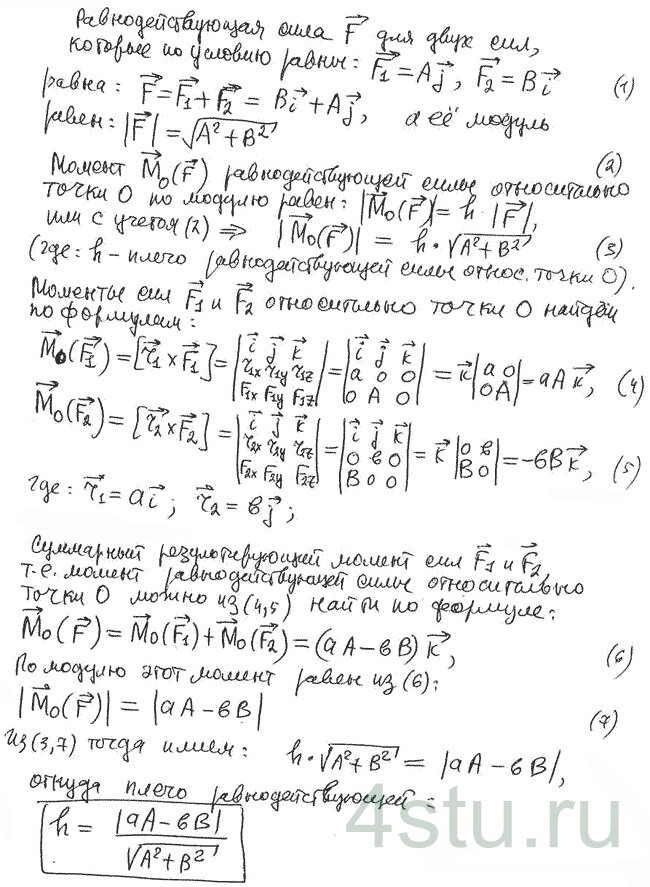 Равнодействующая сила F⃗ для двух сил,
которые по условию равны: F⃗₁ = Aj⃗, F⃗₂ = Bi⃗ (1)
равна: F⃗ = F⃗₁ + F⃗₂ = Bi⃗ + Aj⃗, а её модуль
равен: |F⃗| = √(A² + B²) (2)
Момент M⃗₀(F⃗) равнодействующей силы относительно
точки O по модулю равен: |M⃗₀(F⃗)| = h·|F⃗|,
или с учетом (2) ⇒ |M⃗₀(F⃗)| = h·√(A² + B²) (3)
(где: h – плечо равнодействующей силы относ. точки O).
Моменты сил F⃗₁ и F⃗₂ относительно точки O найдём
по формулам:
M⃗₀(F⃗₁) = [r⃗₁ × F⃗₁] = |i⃗ j⃗ k⃗; r₁ₓ r₁y r₁z; F₁ₓ F₁y F₁z| = |i⃗ j⃗ k⃗; a 0 0; 0 A 0| = k⃗ |a 0; 0 A| = aA k⃗, (4)
M⃗₀(F⃗₂) = [r⃗₂ × F⃗₂] = |i⃗ j⃗ k⃗; r₂ₓ r₂y r₂z; F₂ₓ F₂y F₂z| = |i⃗ j⃗ k⃗; 0 в 0; B 0 0| = k⃗ |0 в; B 0| = -вB k⃗, (5)
где: r⃗₁ = ai⃗; r⃗₂ = вj⃗;
Суммарный результирующей момент сил F⃗₁ и F⃗₂,
т.е. момент равнодействующей силы относительно
точки O можно из (4,5) найти по формуле:
M⃗₀(F⃗) = M⃗₀(F⃗₁) + M⃗₀(F⃗₂) = (aA - вB) k⃗, (6)
По модулю этот момент равен из (6):
|M⃗₀(F⃗)| = |aA - вB| (7)
Из (3,7) тогда имеем: h·√(A² + B²) = |aA - вB|,
откуда плечо равнодействующей:
h = |aA - вB| / √(A² + B²)
4stu.ru